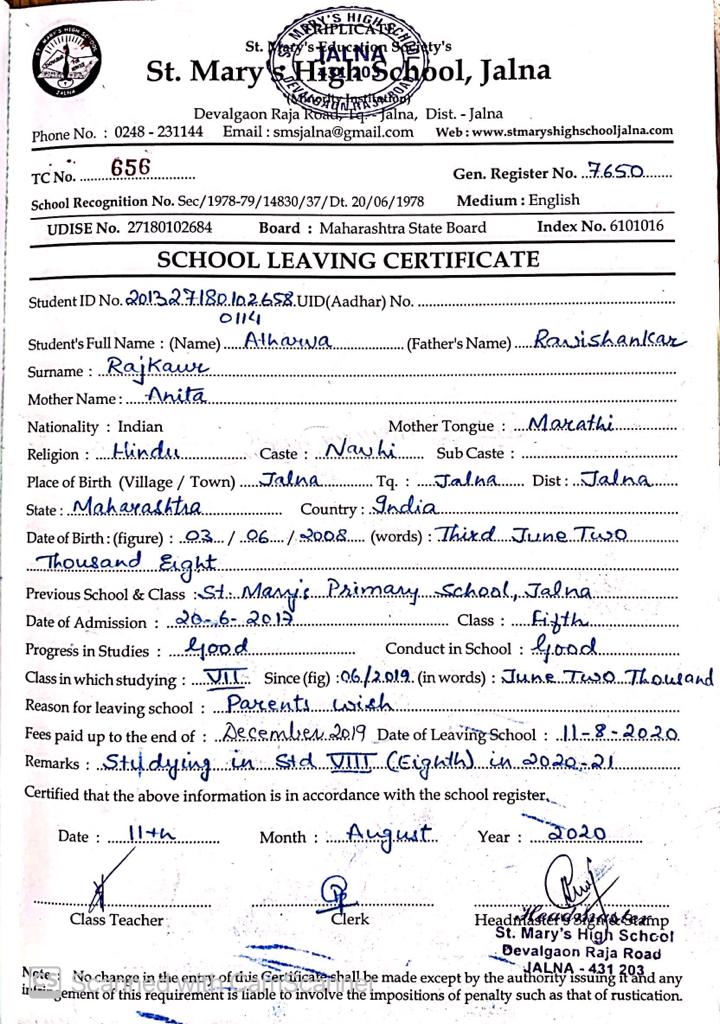 TRIPLICATE
St. Mary's Education Society's
St. Mary's High School, Jalna
ST. MARY'S HIGH SCHOOL
JALNA
431 203
DEVALGAON RAJA ROAD
Devalgaon Raja Road, Tq. - Jalna, Dist. - Jalna
Phone No. : 0248 - 231144 Email : smsjalna@gmail.com Web : www.stmaryshighschooljalna.com
TC No. 656 Gen. Register No. 7650
School Recognition No. Sec/1978-79/14830/37/Dt. 20/06/1978 Medium : English
UDISE No. 27180102684 Board : Maharashtra State Board Index No. 6101016
SCHOOL LEAVING CERTIFICATE
Student ID No. 201327180102658 UID(Aadhar) No.
0114
Student's Full Name : (Name) Atharva (Father's Name) Ravishankar
Surname : Rajkawr
Mother Name : Anita
Nationality : Indian Mother Tongue : Marathi
Religion : Hindu Caste : Navhi Sub Caste :
Place of Birth (Village / Town) Jalna Tq. : Jalna Dist : Jalna
State : Maharashtra Country : India
Date of Birth : (figure) : 03 / 06 / 2008 (words) : Third June Two
Thousand Eight
Previous School & Class : St. Mary's Primary School, Jalna
Date of Admission : 20-6-2017 Class : Fifth
Progress in Studies : Good Conduct in School : Good
Class in which studying : VII Since (fig) : 06/2019 (in words) : June Two Thousand
Reason for leaving school : Parents wish
Fees paid up to the end of : December 2019 Date of Leaving School : 11-8-2020
Remarks : Studying in Std VIII (Eighth) in 2020-21
Certified that the above information is in accordance with the school register.
Date : 11th Month : August Year : 2020
Class Teacher Clerk Headmaster's Sign & Stamp
Headmaster
St. Mary's High School
Devalgaon Raja Road
JALNA - 431 203
Note : No change in the entry of this Certificate shall be made except by the authority issuing it and any
infringement of this requirement is liable to involve the impositions of penalty such as that of rustication.
CS Scanned with CamScanner